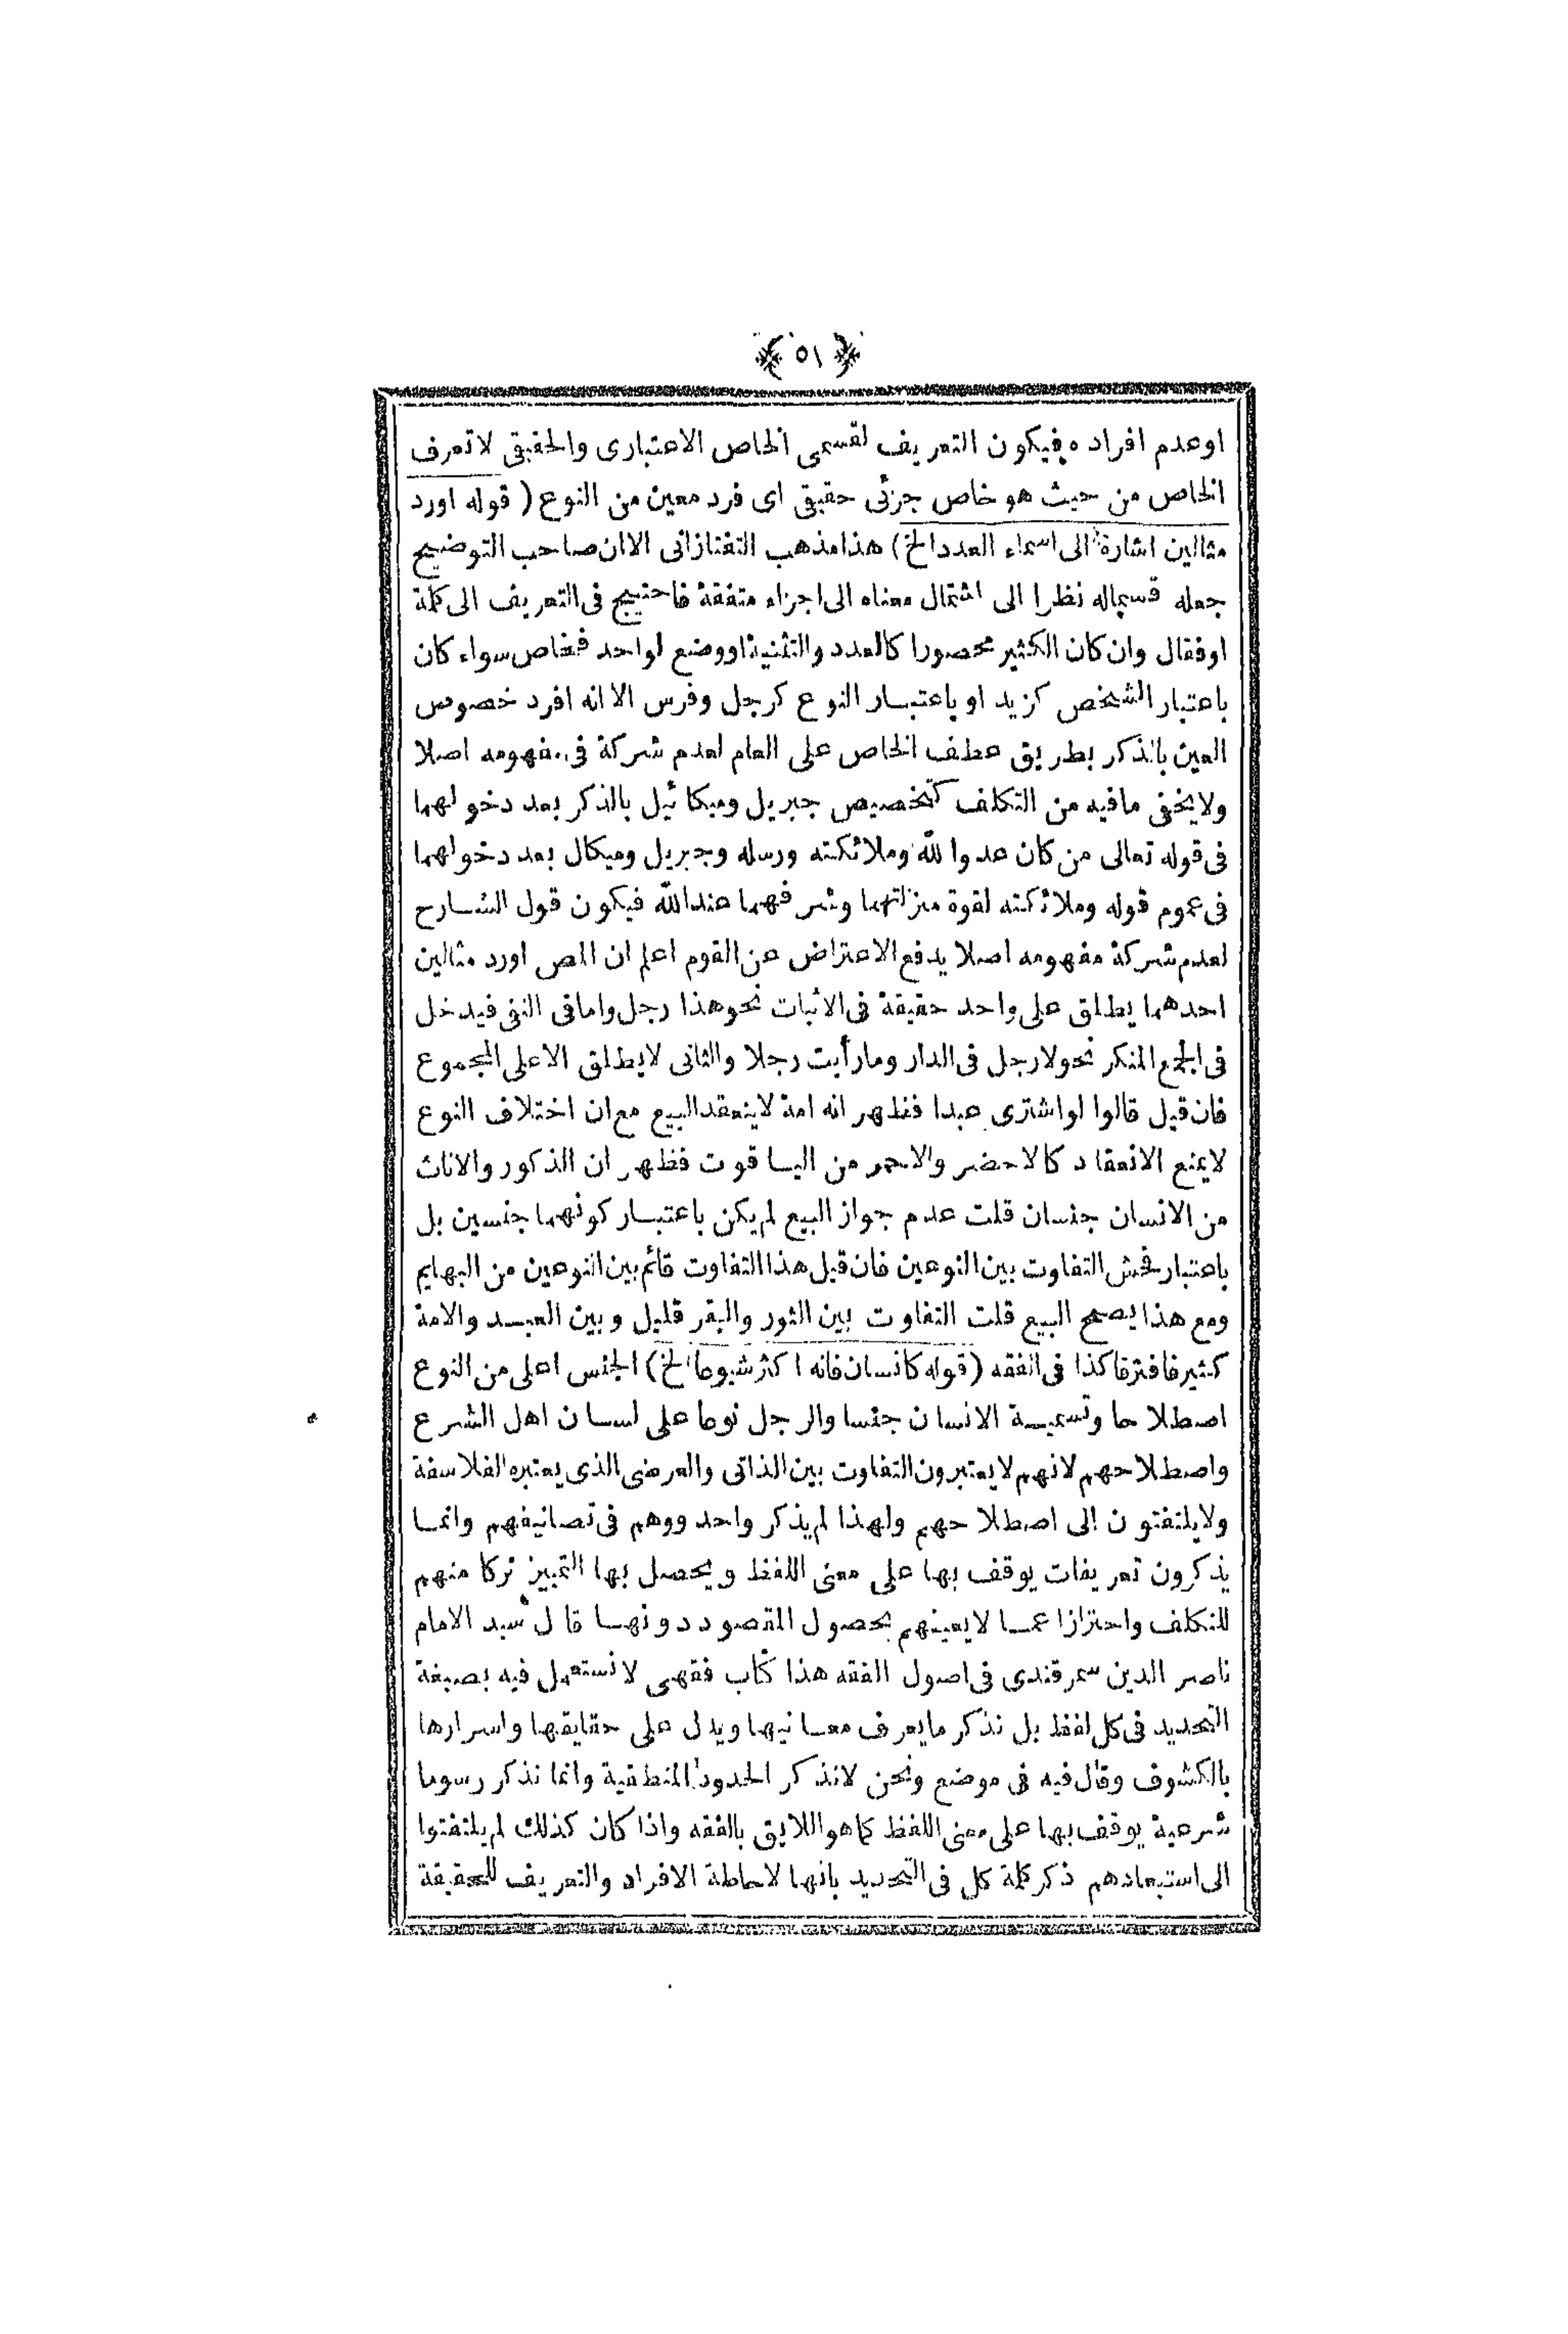 ﴿ ٥١ ﴾
اوعدم افراده فيكون التعريف لقسمى الخاص الاعتبارى والحقيقى لا تعرف
الخاص من حيث هو خاص جزئى حقيقى اى فرد معين من النوع ( قوله اورد
مثالين اشارة الى اسماء العدد الخ ) هذا مذهب التفتازانى الا ان صاحب التوضيح
جعله قسيماله نظرا الى اشتمال معناه الى اجزاء متفقة فاحتيج فى التعريف الى كلمة
او فقال وان كان الكثير محصورا كالعدد والتثنية او وضع لواحد فخاص سواء كان
باعتبار الشخص كزيد او باعتبار النوع كرجل وفرس الا انه افرد خصوص
العين بالذكر بطريق عطف الخاص على العام لعدم شركة فى مفهومه اصلا
ولا يخفى مافيه من التكلف كتخصيص جبريل وميكائيل بالذكر بعد دخولهما
فى قوله تعالى من كان عدوا لله وملائكته ورسله وجبريل وميكال بعد دخولهما
فى عموم قوله وملائكته لقوة منزلتهما وشرفهما عندالله فيكون قول الشارح
لعدم شركة مفهومه اصلا يدفع الاعتراض عن القوم اعلم ان المص اورد مثالين
احدهما يطلق على واحد حقيقة فى الاثبات نحو هذا رجل واما فى النفى فيدخل
فى الجمع المنكر نحو لا رجل فى الدار وما رأيت رجلا والثانى لا يطلق الا على المجموع
فان قيل قالوا لو اشترى عبدا فظهر انه امة لا ينعقد البيع مع ان اختلاف النوع
لا يمنع الانعقاد كالاخضر والاحمر من الياقوت فظهر ان الذكور والاناث
من الانسان جنسان قلت عدم جواز البيع لم يكن باعتبار كونهما جنسين بل
باعتبار فحش التفاوت بين النوعين فان قيل هذا التفاوت قائم بين النوعين من البهايم
ومع هذا يصح البيع قلت التفاوت بين الثور والبقر قليل وبين العبد والامة
كثير فافترقا كذا فى الفقه ( قوله كانسان فانه اكثر شيوعا الخ ) الجنس اعلى من النوع
اصطلاحا وتسمية الانسان جنسا والرجل نوعا على لسان اهل الشرع
واصطلاحهم لانهم لا يعتبرون التفاوت بين الذاتى والعرضى الذى يعتبره الفلاسفة
ولا يلتفتون الى اصطلاحهم ولهذا لم يذكر واحد ووهم فى تصانيفهم وانما
يذكرون تعريفات يوقف بها على معنى اللفظ ويحصل بها التمييز تركا منهم
للتكلف واحترازا عما لا يعينهم بحصول المقصود دونها قال سيد الامام
ناصر الدين سمرقندى فى اصول الفقه هذا كتاب فقهى لا نستعمل فيه بصيغة
التحديد فى كل لفظ بل نذكر ما يعرف معانيها ويدل على حقايقها واسرارها
بالكشوف وقال فيه فى موضع ونحن لا نذكر الحدود المنطقية وانما نذكر رسوما
شرعية يوقف بها على معنى اللفظ كما هو اللايق بالفقه واذا كان كذلك لم يلتفتوا
الى استبعادهم ذكر كلمة كل فى التحديد بانها لاحاطة الافراد والتعريف للحقيقة